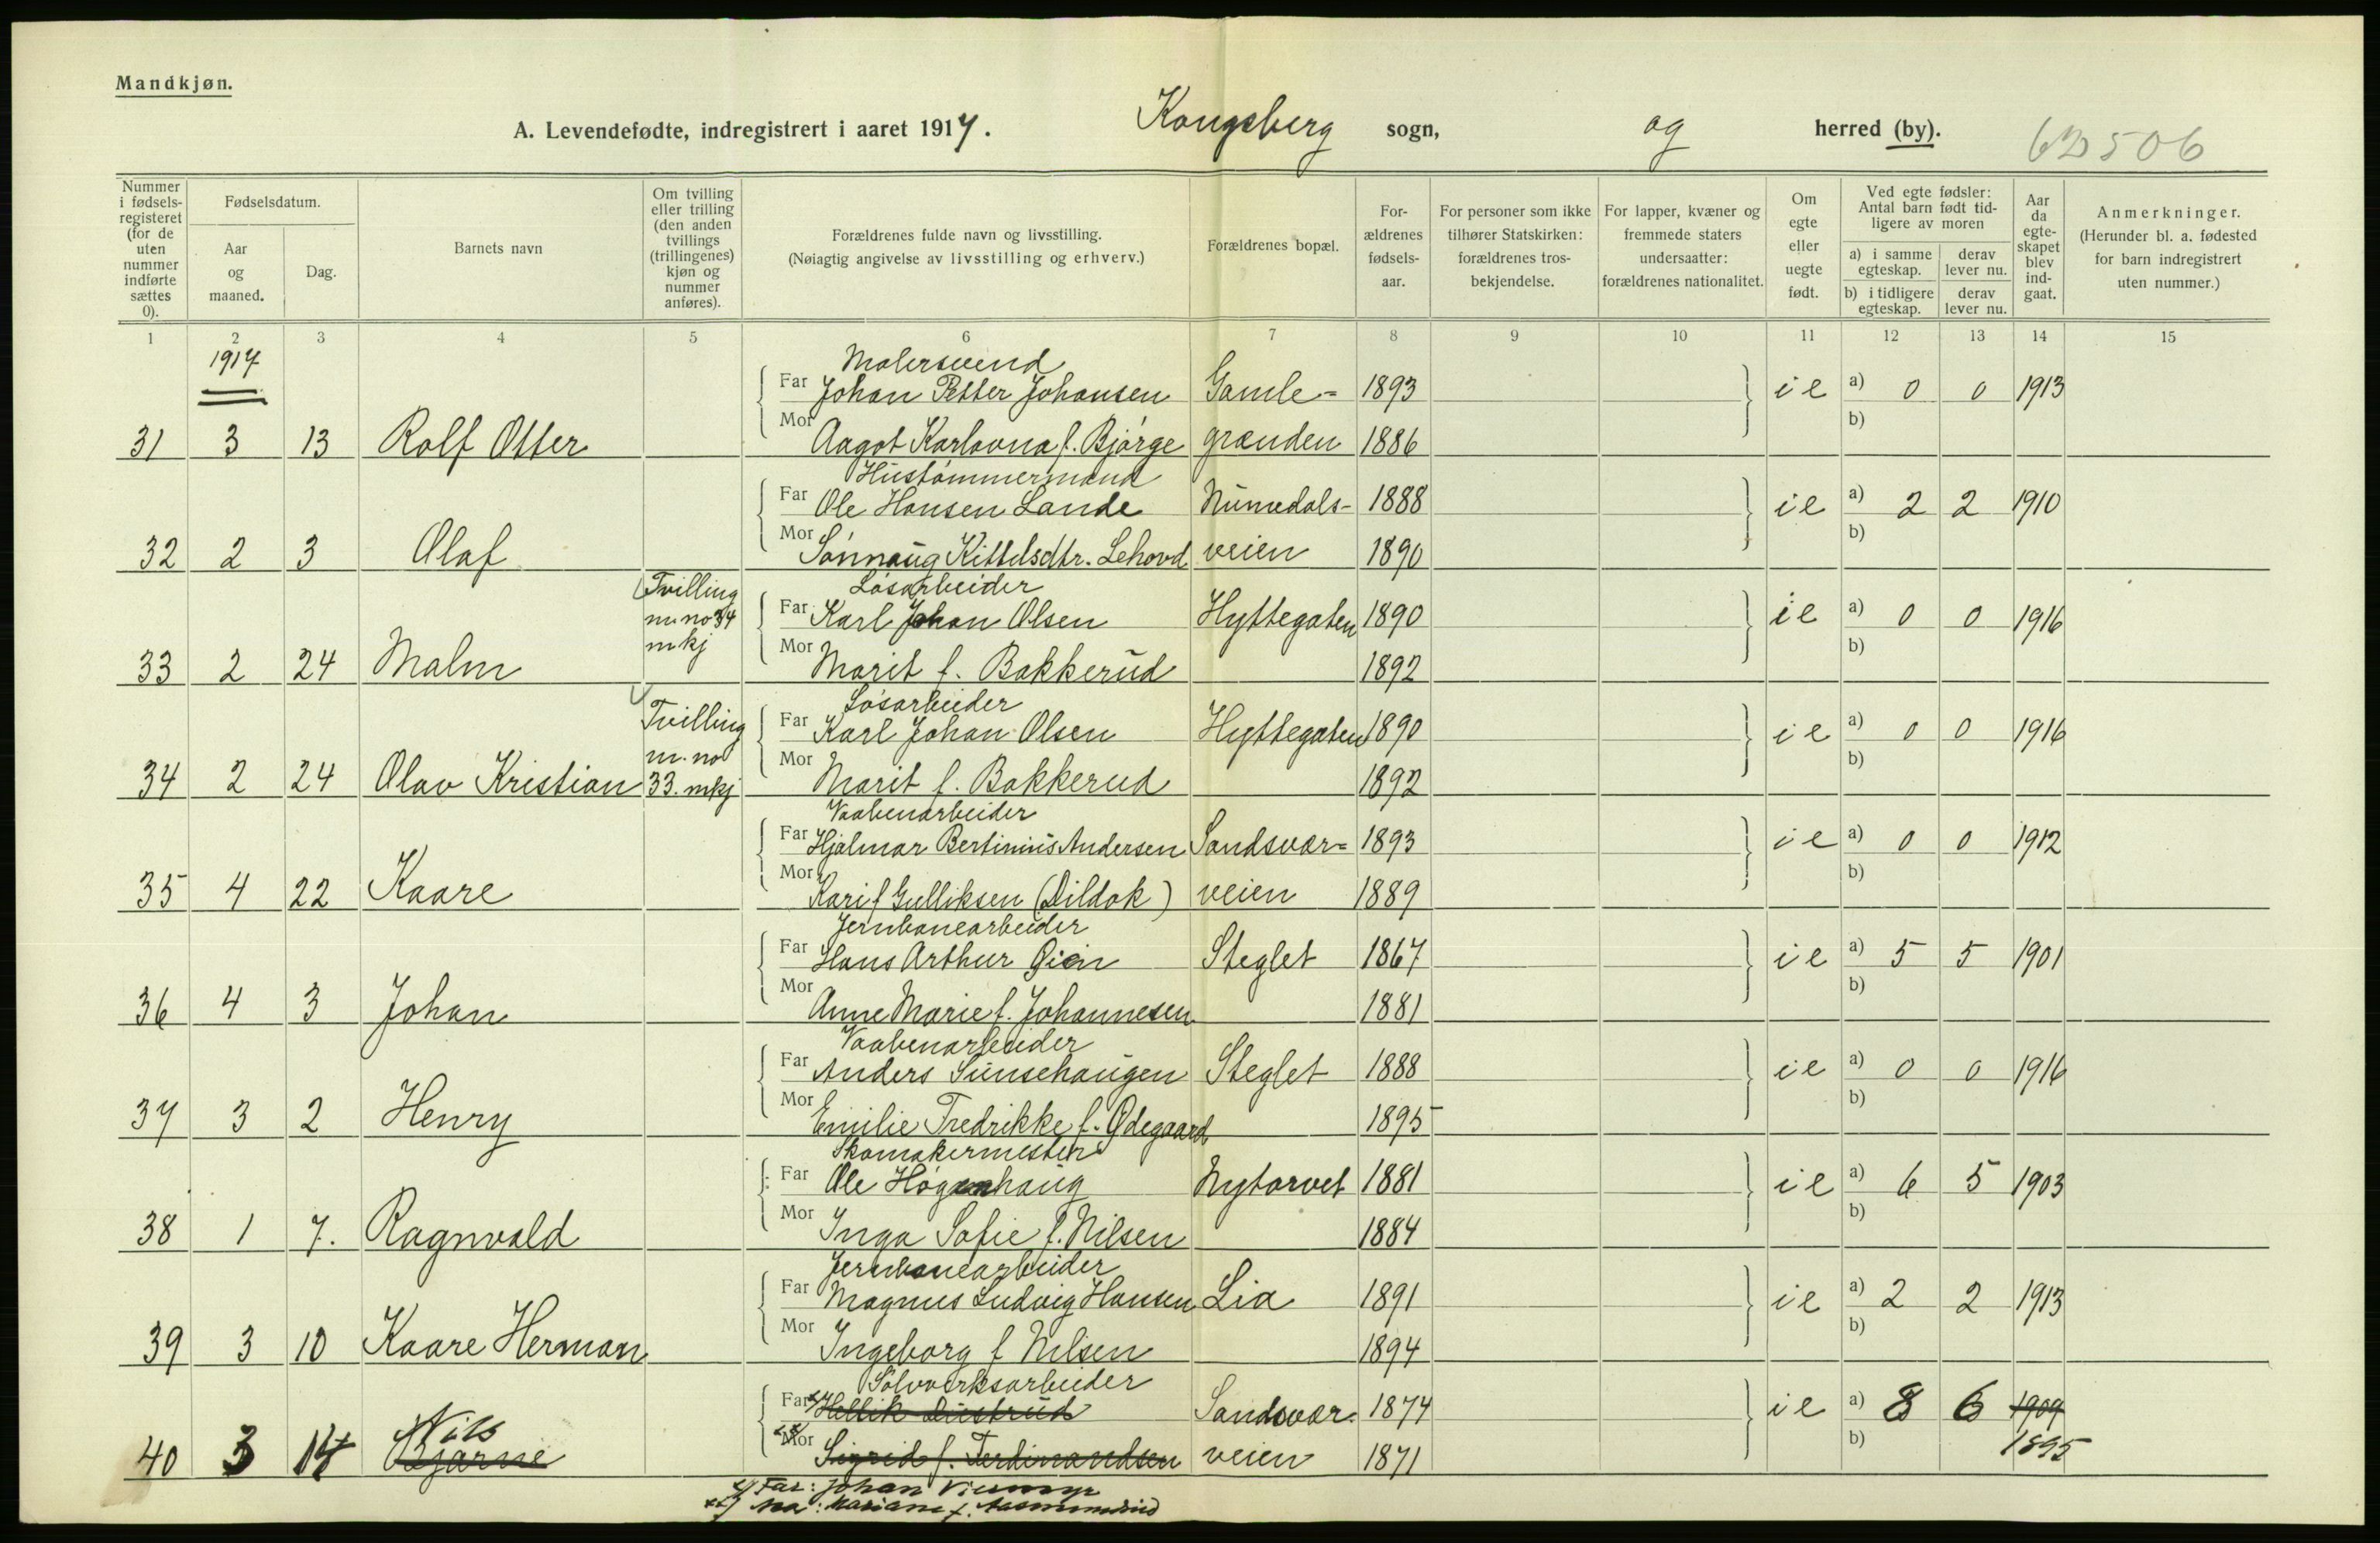 Mandkjøn.
A. Levendefødte, indregistrert i aaret 1917. Kongsberg sogn, og herred (by). 62506
Nummer i fødselsregisteret (for de uten nummer indførte sættes 0).
Fødselsdatum.
Aar og maaned.
Dag.
Barnets navn
Om tvilling eller trilling (den anden tvillings (trillingenes) kjøn og nummer anføres).
Forældrenes fulde navn og livsstilling.
(Nøiagtig angivelse av livsstilling og erhverv.)
Forældrenes bopæl.
Forældrenes fødselsaar.
For personer som ikke tilhører Statskirken: forældrenes trosbekjendelse.
For lapper, kvæner og fremmede staters undersaatter: forældrenes nationalitet.
Om egte eller uegte født.
Ved egte fødsler: Antal barn født tidligere av moren
a) i samme egteskap. derav lever nu.
b) i tidligere egteskap. derav lever nu.
Aar da egteskapet blev indgaat.
Anmerkninger.
(Herunder bl. a. fødested for barn indregistrert uten nummer.)
1 2 3 4 5 6 7 8 9 10 11 12 13 14 15
1917
Malersvend
Far Johan Petter Johansen Gamle- 1893 ie a) 0 0 1913
31 3 13 Rolf Otter Mor Aagot Karlovna f. Bjørge grænden 1886 b)
Hustømmermand
Far Ole Hansen Lande Numedals- 1888 ie a) 2 2 1910
32 2 3 Olaf Mor Sønnaug Kittelsdtr. Lehovd veien 1890 b)
Tvilling m. no 34 mkj
Løsarbeider
Far Karl Johan Olsen Hyttegaten 1890 ie a) 0 0 1916
33 2 24 Malm Mor Marit f. Bakkerud 1892 b)
Tvilling m. no 33. mkj
Løsarbeider
Far Karl Johan Olsen Hyttegaten 1890 ie a) 0 0 1916
34 2 24 Olav Kristian Mor Marit f. Bakkerud 1892 b)
Vaabenarbeider
Far Hjalmar Bertinius Andersen Sandsvær- 1893 ie a) 0 0 1912
35 4 22 Kaare Mor Kari f Gulliksen (Dildok) veien 1889 b)
Jernbanearbeider
Far Hans Arthur Øien Steglet 1867 ie a) 5 5 1901
36 4 3 Johan Mor Anne Marie f. Johannesen 1881 b)
Vaabenarbeider
Far Anders Sunsehaugen Steglet 1888 ie a) 0 0 1916
37 3 2 Henry Mor Emilie Fredrikke f. Ødegaard 1895 b)
Skomakermester
Far Ole Høgenhaug Nytorvet 1881 ie a) 6 5 1903
38 1 7. Ragnvald Mor Inga Sofie f. Nilsen 1884 b)
Jernbanearbeider
Far Magnus Ludvig Hansen Lia 1891 ie a) 2 2 1913
39 3 10 Kaare Herman Mor Ingeborg f Nilsen 1894 b)
Sølvverksarbeider
Far x) Hellik Sandsvær- 1874 ie a) 8 6 1909
Nils
40 3 14 Bjarne xx) Mor Sigrid f. Ferdinandsen veien 1871 b) 1895
x) Far: Johan
xx) Mor: Mariane f.